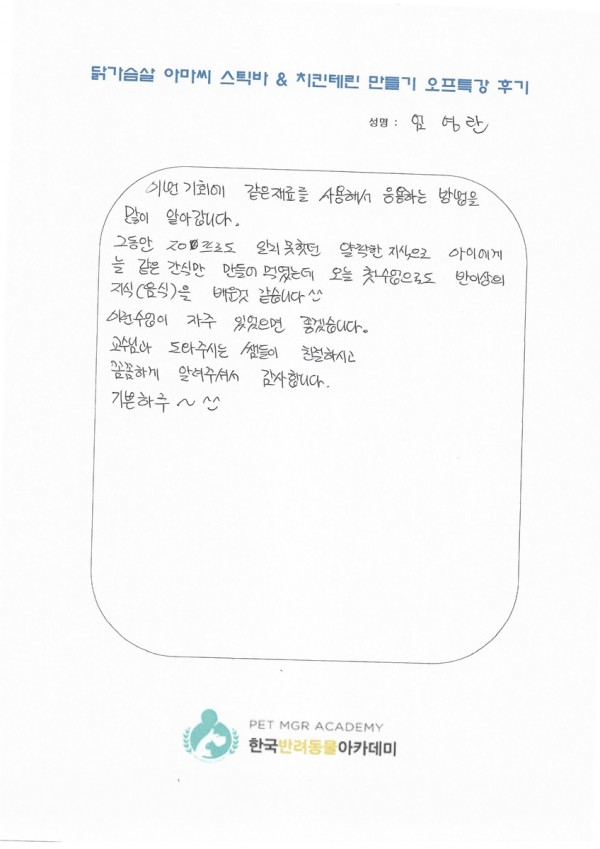 닭가슴살 아마씨 스틱바 & 치킨테린 만들기 오프특강 후기
성명 : 임영란
이번 기회에 같은재료를 사용해서 응용하는 방법을
많이 알아갑니다.
그동안 20%프로도 알지못했던 얄팍한 지식으로 아이에게
늘 같은 간식만 만들어 먹였는데 오늘 첫수업으로도 반이상의
지식(음식)을 배운것 같습니다^^
이런수업이 자주 있었으면 좋겠습니다.
교수님과 도와주시는 쌤들이 친절하시고
꼼꼼하게 알려주셔서 감사합니다.
기쁜하루 ~ ^^
PET MGR ACADEMY
한국반려동물아카데미